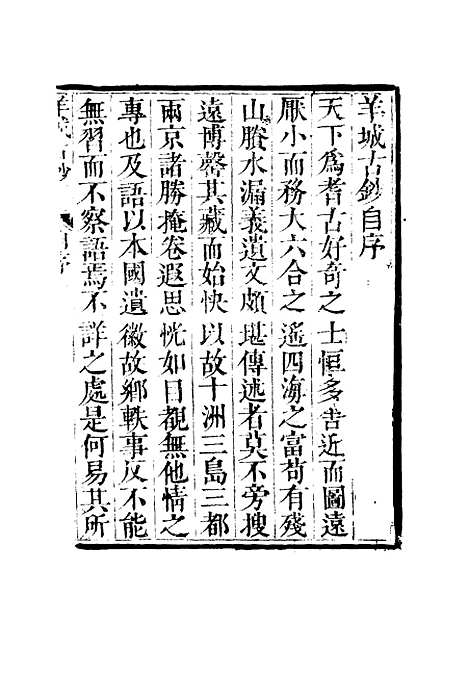 羊城古鈔自序
天下爲耆古好奇之士恒多舍近而圖遠
厭小而務大六合之遙四海之富苟有殘
山賸水漏義遺文頗堪傳述者莫不旁搜
遠博罄其藏而始快以故十洲三島三都
兩京諸勝掩卷遐思恍如目覩無他情之
專也及語以本國遺徽故鄉軼事反不能
無習而不察語焉不詳之處是何易其所